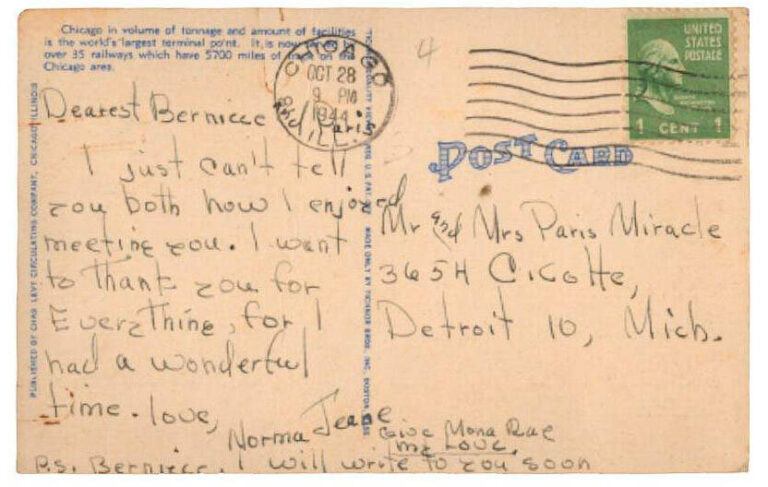 Chicago in volume of tonnage and amount of facilities
is the world's largest terminal point. It is now served by
over 35 railways which have 5700 miles of track in the
Chicago area.
CHICAGO
OCT 28
9 PM
1944
ILL.
UNITED
STATES
POSTAGE
1 CENT 1
4
POST CARD
Dearest Bernice
& Paris
I just can't tell
you both how I enjoyed
meeting you. I want
to thank you for
Everything, for I
had a wonderful
time. love,
Norma Jeane
Give Mona Rae
my Love.
P.s. Bernice. I will write to you soon
Mr and Mrs Paris Miracle
3654 Cicotte,
Detroit 10, Mich.
PUBLISHED BY CHAS. LEVY CIRCULATING COMPANY, CHICAGO, ILLINOIS
MADE ONLY BY TICHNOR BROS. INC. BOSTON MASS